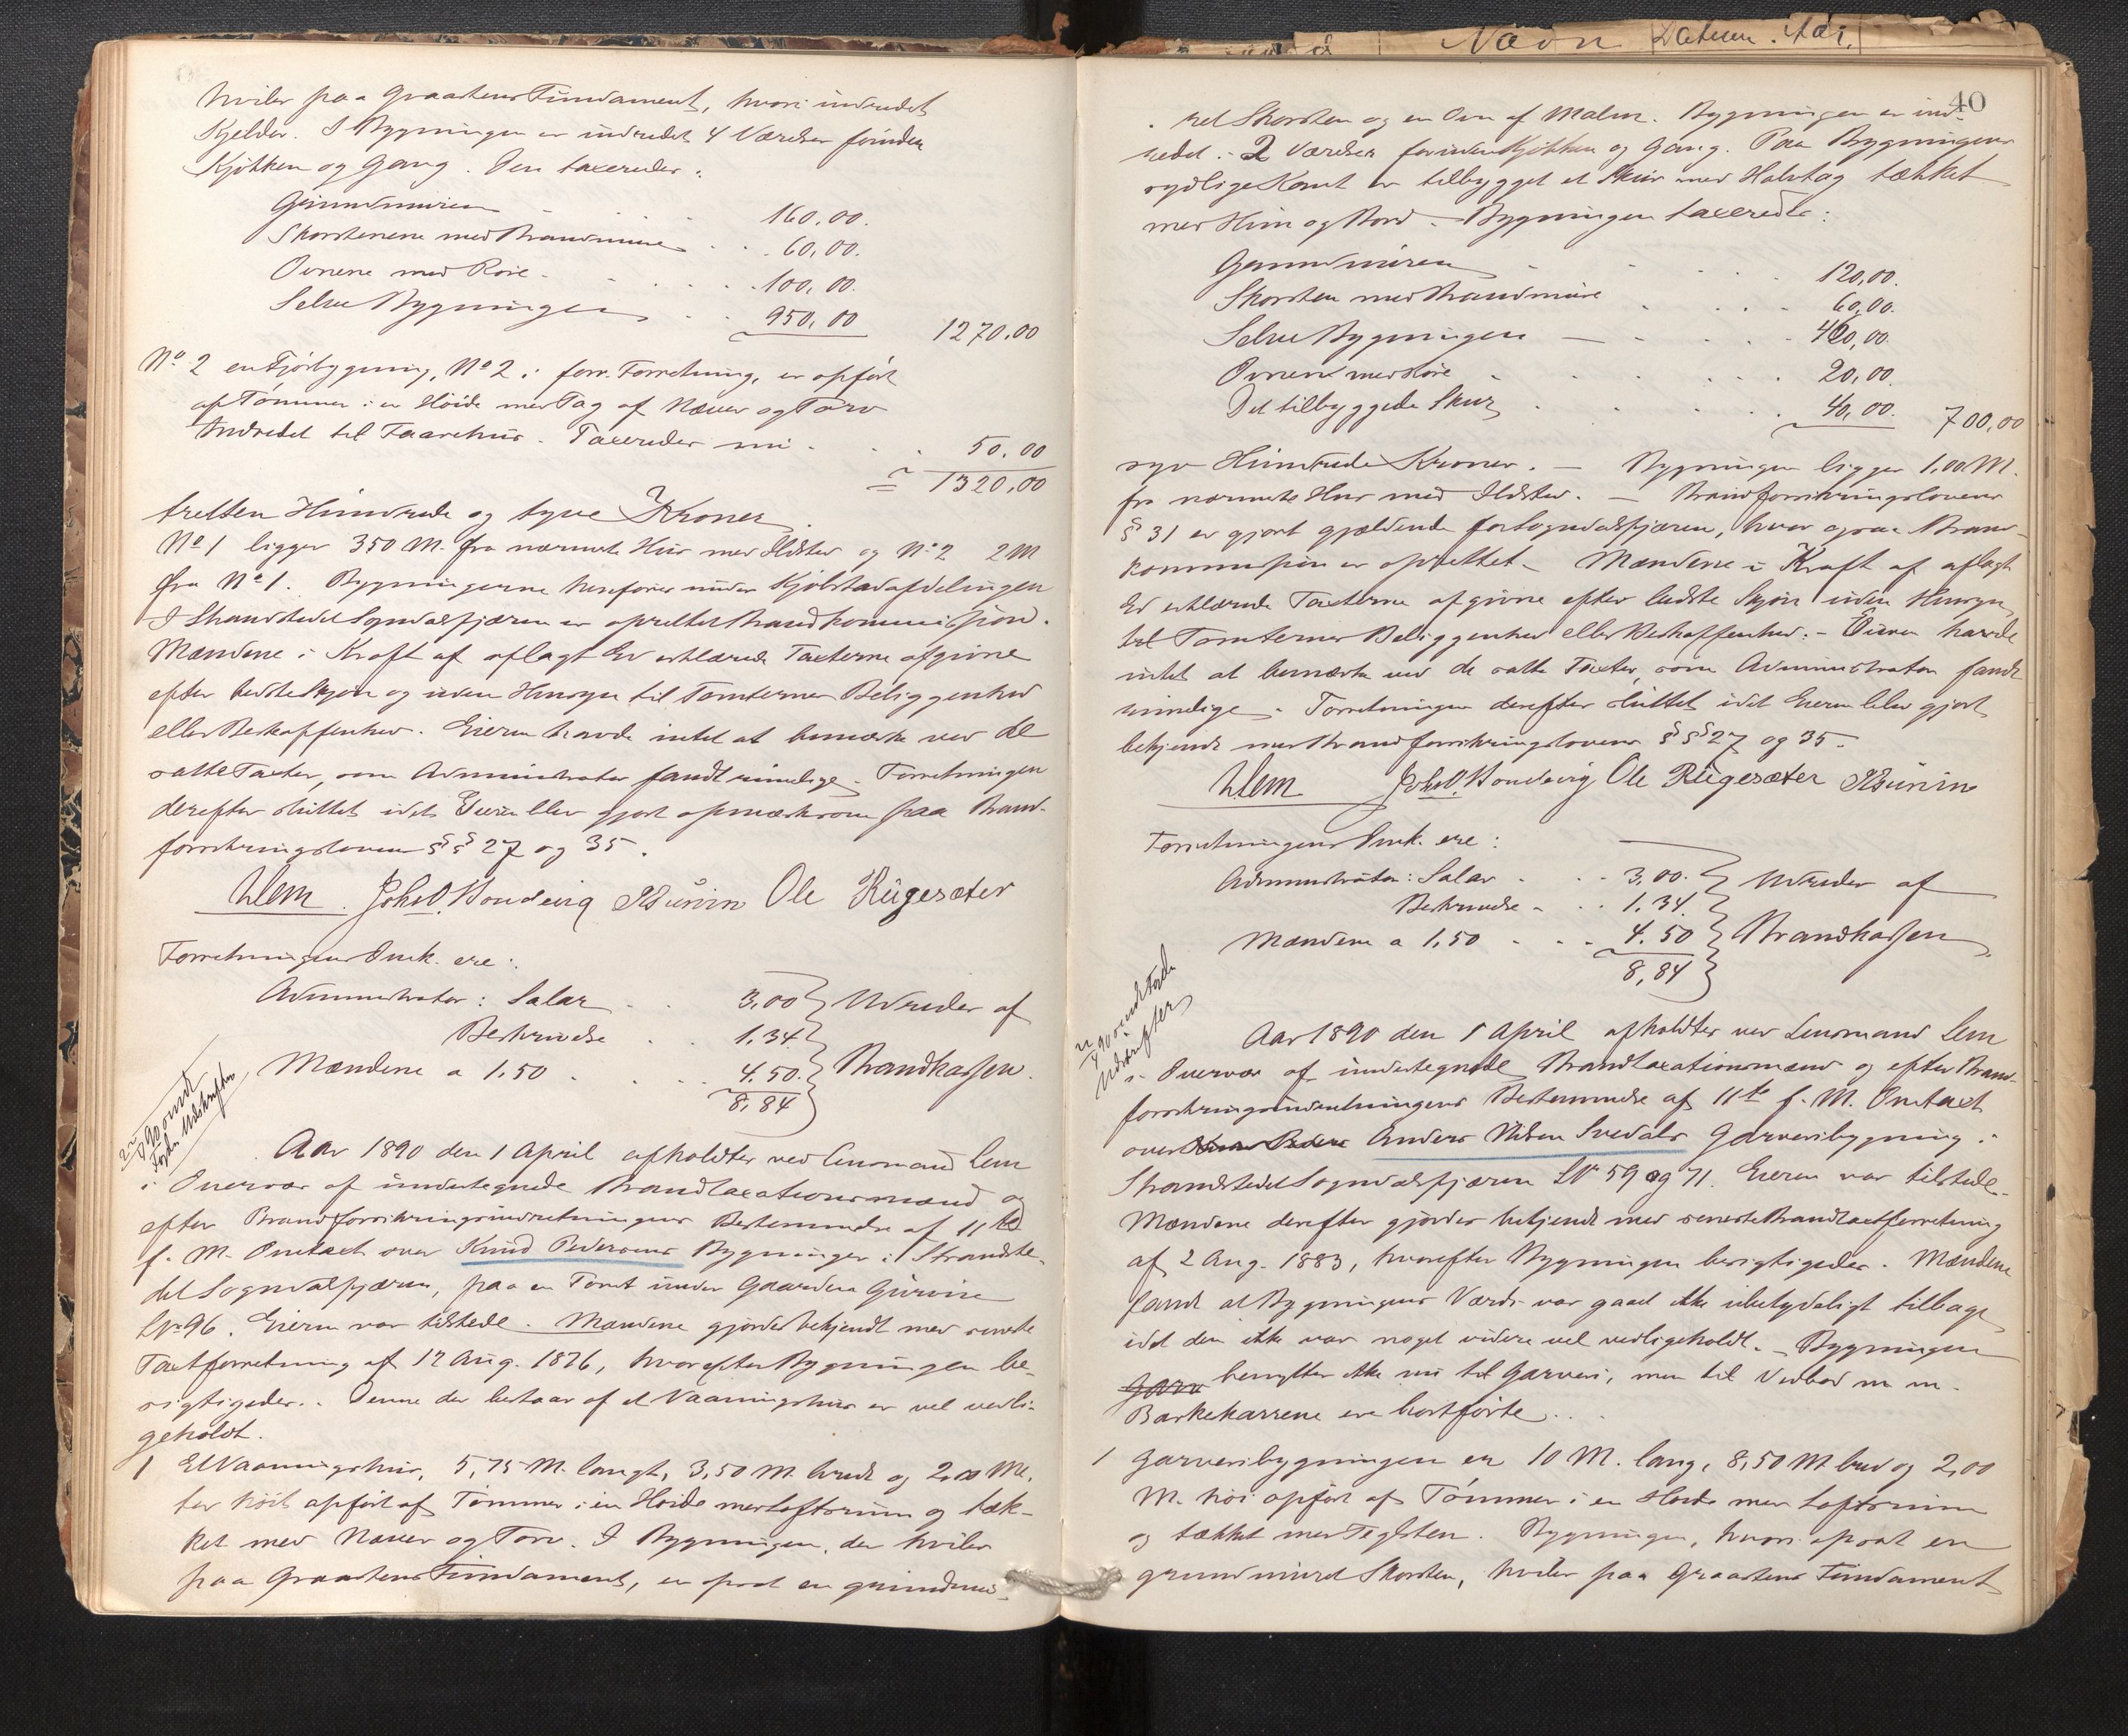 hviler paa Graastens Fundament, hvori indredet
Kjelder. I Bygningen er indredet 4 Værelser foruden
Kjøkken og Gang. Den taxeredes:
Grundmuren 160,00.
Skorstenene med Brandmure 60,00.
Ovnene med Rør 100,00.
Selve Bygningen 950,00 1270,00
No 2 en Fjøsbygning, No 2 i forr. Forretning, er opført
af Tømmer i en Høide med Tag af Næver og Torv
Indredet til Faarehus. Taxeredes nu 50,00
1320,00
tretten Hundrede og tyve Kroner.
No 1 ligger 350 M. fra nærmeste Hus med Ildsted og No 2 2 M
fra No 1. Bygningerne henføres under Kjøbstadafdelingen
I Strandstedet Sogndalsfjæren er oprettet Brandkommission.
Mændene i Kraft af aflagt Ed erklærede Taxterne afgivne
efter bedste Skjøn og uden Hensyn til Tomternes Beliggenhed
eller Beskaffenhed. Eieren havde intet at bemærke ved de
satte Taxter, som Administrator fandt rimelige. Forretningen
derefter sluttet idet Eieren blev gjort opmærksom paa Brand-
forsikringslovens §§ 27 og 35.
Lem Joh. O. Hondevig Ole Rügesæter
Forretningens Omk. ere:
Administrator: Salær 3,00 Udredes af
Beskrivelse 1,34
Mændene a 1,50 4,50 Brandkassen.
8,84
Aar 1890 den 1 April afholdtes ved Lensmand Lem
i Overvær af undertegnede Brandtaxationsmænd og
efter Brandforsikringsindretningens Bestemmelse af 11te
f. M. Omtaxt over Knud Pedersens Bygninger i Strandste-
det Sogndalsfjæren, paa en Tomt under Gaarden
LNr 96. Eieren var tilstede. Mændene gjordes bekjendt med seneste
Taxtforretning af 17 Aug. 1876, hvorefter Bygningen be-
sigtigedes. Denne der bestaar af et Vaaningshus er vel vedli-
geholdt.
1 Et Vaaningshus, 5,75 M. langt, 3,50 M. bredt og 2,00 Me-
ter høit opført af Tømmer i en Høide med Loftsrum og tæk-
ket med Næver og Torv. I Bygningen, der hviler
paa Graastens Fundament, er opsat en grundmu-
Navn Datum. Aar.
40
ret Skorsten og en Ovn af Malm. Bygningen er ind-
redet i 2 Værelser foruden Kjøkken og Gang. Paa Bygningens
sydlige Kant er tilbygget et Skur med Halvtag tækket
med Him og Bord. Bygningen taxeredes:
Grundmuren 120,00.
Skorsten med Brandmure 60,00.
Selve Bygningen 460,00.
Ovnene med Rør 20,00.
Det tilbyggede Skur 40,00. 700,00
syv Hundrede Kroner. — Bygningen ligger 1,00 M.
fra nærmeste Hus med Ildsted. — Brandforsikringslovens
§ 31 er gjort gjældende for Sogndalsfjæren, hvor ogsaa Brand-
kommission er oprettet. Mændene i Kraft af aflagt
Ed erklærede Taxterne afgivne efter bedste Skjøn uden Hensyn
til Tomternes Beliggenhed eller Beskaffenhed. – Eieren havde
intet at bemærke ved de satte Taxter, som Administrator fandt
rimelige. Forretningen derefter sluttet idet Eieren blev gjort
bekjendt med Brandforsikringslovens §§ 27 og 35.
Lem Joh. O. Hondevig Ole Rügesæter
Forretningens Omk. ere:
Administrator: Salær 3,00. Udredes af
Beskrivelse 1,34.
Mændene a 1,50 4,50 Brandkassen
8,84
Aar 1890 den 1 April afholdtes ved Lensmand Lem
i Overvær af undertegnede Brandtaxationsmænd og efter Brand-
forsikringsindretningens Bestemmelse af 11te f. M. Omtaxt
over Anders Nilsen Svedals Garveribygning i
Strandstedet Sogndalsfjæren LNr 59 og 71. Eieren var tilstede.
Mændene derefter gjordes bekjendt med seneste Brandtaxtforretning
af 2 Aug. 1883, hvorefter Bygningen besigtigedes. Mændene
fandt at Bygningens Værdi var gaaet ikke ubetydeligt tilbage
idet den ikke var noget videre vel vedligeholdt. – Bygningen
Garv benyttes ikke nu til Garveri, men til Vedbod m m.
Barkekarrene ere bortførte.
1 Garveribygningen er 10 M. lang, 8,50 M bred og 2,00
M. høi opført af Tømmer i en Høide med Loftsrum
og tækket med Teglsten. Bygningen, hvori opsat en
grundmuret Skorsten, hviler paa Graastens Fundament